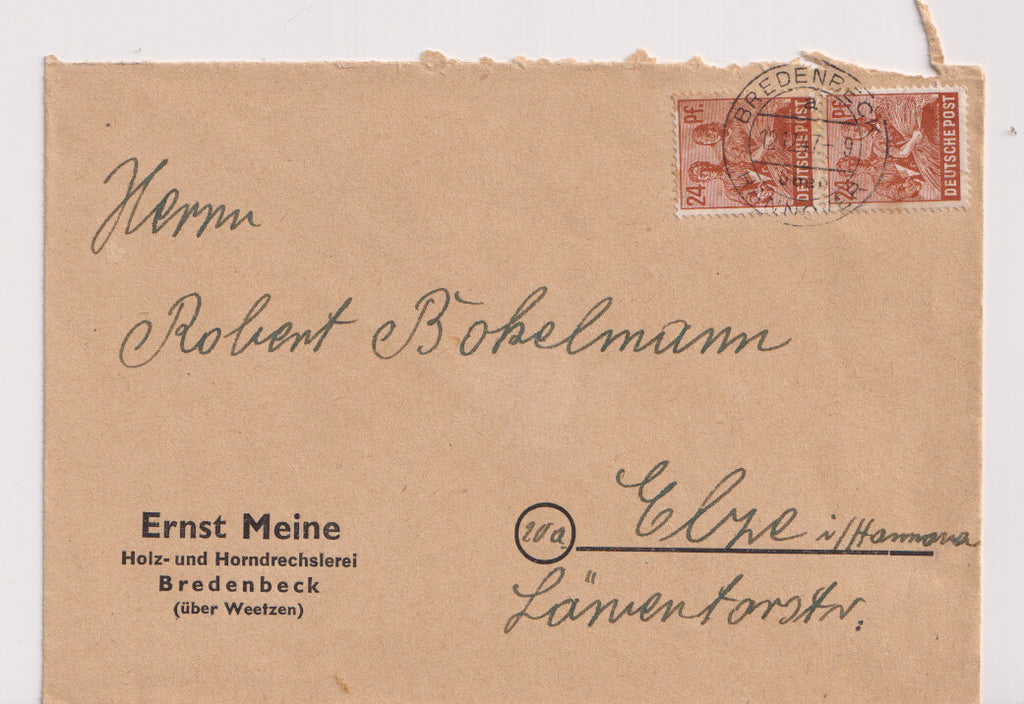 BREDENBECK
a
47- 9
HANNOVER
24 PF DEUTSCHE POST
24 PF DEUTSCHE POST
Herrn
Robert Bokelmann
20a Elze i/Hannover
Ernst Meine
Holz- und Horndrechslerei
Bredenbeck
(über Weetzen)